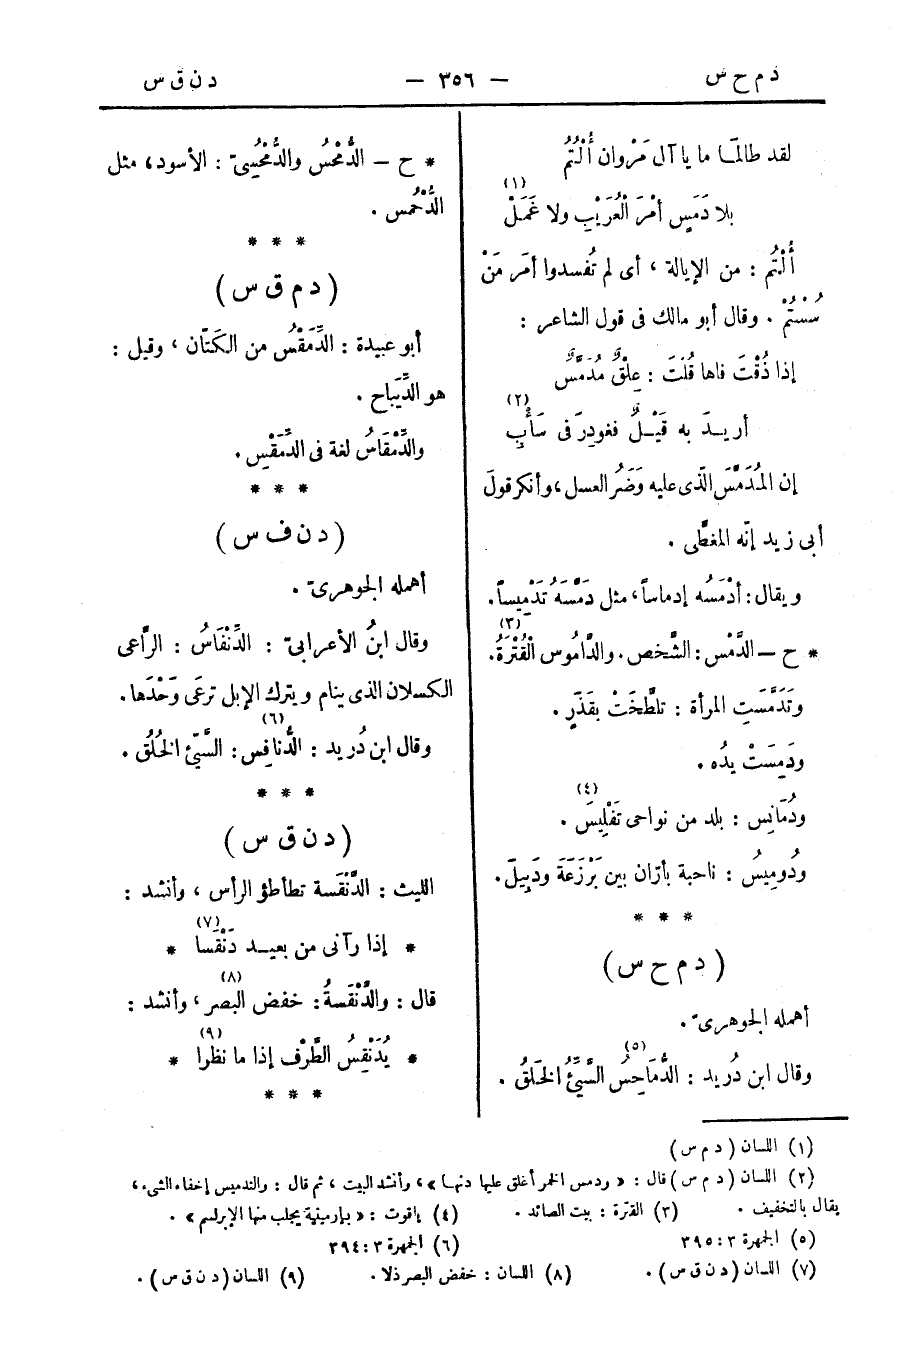 د م ح س — ٣٥٦ — د ن ق س
لقد طالمَا ما يا آل مَرْوان أُلْتُمُ
بلا دَمَسٍ أمْرَ الْعُرَيْبِ ولا غَمَلْ (١)
أُلْتُم : من الإيالة ، أى لم تُفسدوا أمَر مَنْ
سُسْتُمْ . وقال أبو مالك فى قول الشاعر :
إذا ذُقْتَ فاها قُلتَ : عِلْقٌ مُدَمَّسٌ
أريـدَ به قَيْـلٌ فغودِرَ فى سَأْبِ (٢)
إن المُدَمَّسَ الّذى عليه وَضَرُ العسل ، وأنكر قولَ
أبى زيد إنّه المغطَّى .
ويقال : أدْمَسَه إدماساً ، مثل دَمَّسَهُ تَدْمِيساً .
* ح — الدَّمْس : الشَّخص . والدَّاموس الْقُتْرَةُ (٣) .
وتَدَمَّسَتِ المرأة : تلطَّخَتْ بقَذَرٍ .
ودَمِسَتْ يدُه .
ودُمَانِس : بلد من نواحى تَفْلِيسَ (٤) .
ودُومِيسُ : ناحية بأرّان بين بَرْزَعَةَ ودَبِيلَ .
* * *
( د م ح س )
أهمله الجوهرىّ .
وقال ابن دُريد : الدُّمَاحِسُ (٥) السَّيِّئُ الخَلَقُ .
* ح — الدُّمْحُسُ والدُّمْحُسِىّ : الأسود ، مثل
الدُّحْمُس .
* * *
( د م ق س )
أبو عبيدة : الدِّمَقْسُ من الكَتّان ، وقيل :
هو الدِّيباح .
والدِّمْقَاسُ لغة فى الدِّمَقْسِ .
* * *
( د ن ف س )
أهمله الجوهرىّ .
وقال ابنُ الأعرابىّ : الدِّنْفَاسُ : الرَّاعى
الكسلان الذى ينام ويترك الإبل ترعَى وَحْدَها .
وقال ابن دُريد : الدُّنافِس (٦) : السَّيّئ الخُلُق .
* * *
( د ن ق س )
الليث : الدَّنْقَسة تطأطؤ الرأس ، وأنشد :
* إذا رآنى من بعيـد دَنْقَسَا (٧) *
قال : والدَّنْقَسةُ : خفض البصر (٨) ، وأنشد :
* يُدَنْقِسُ الطَّرْفَ إذا ما نظرا (٩) *
* * *
(١) اللسان ( د م س )
(٢) اللسان ( د م س ) قال : « ودمس الخمر أغلق عليها دنها » ، وأنشد البيت ، ثم قال : والتدميس إخفاء الشىء ،
يقال بالتخفيف . (٣) القترة : بيت الصائد . (٤) ياقوت : « بإرمينية يجلب منها الإبرليم » .
(٥) الجمهرة ٣ : ٣٩٥ (٦) الجمهرة ٣ : ٣٩٤
(٧) اللسان ( د ن ق س ) . (٨) اللسان : خفض البصر ذلا . (٩) اللسان ( د ن ق س ) .